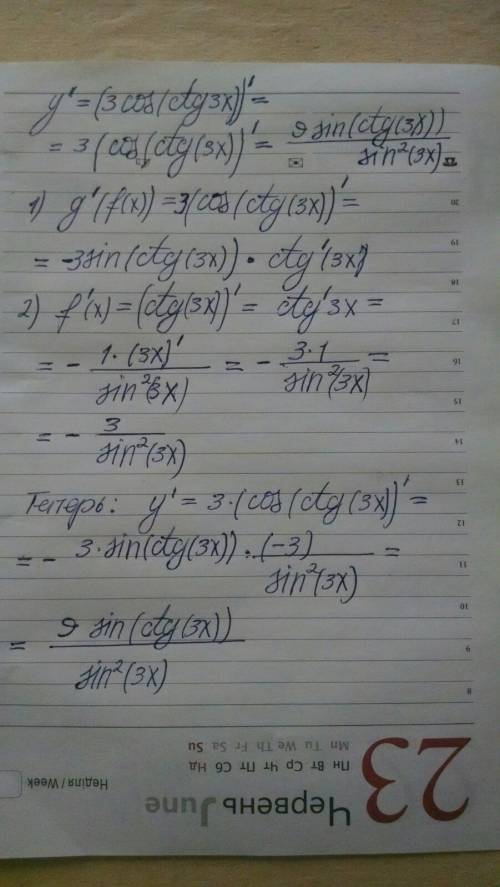 y' = (3cos(ctg3x))' =
= 3(cos(ctg(3x))' = 9 sin(ctg(3x)) / sin²(3x)
1) g'(f(x)) = 3(cos(ctg(3x))' =
= -3sin(ctg(3x)) · ctg'(3x)
2) f'(x) = (ctg(3x))' = ctg'3x =
= - 1·(3x)' / sin²(3x) = - 3·1 / sin²(3x) =
= - 3 / sin²(3x)
Теперь: y' = 3·(cos(ctg(3x))' =
= - 3·sin(ctg(3x)) · (-3) / sin²(3x) =
= 9 sin(ctg(3x)) / sin²(3x)
20
19
18
17
16
15
14
13
12
11
10
9
8
23
Mn Tu We Th Fr Sa Su
Пн Вт Ср Чт Пт Сб Нд
Неділя / Week
Червень June